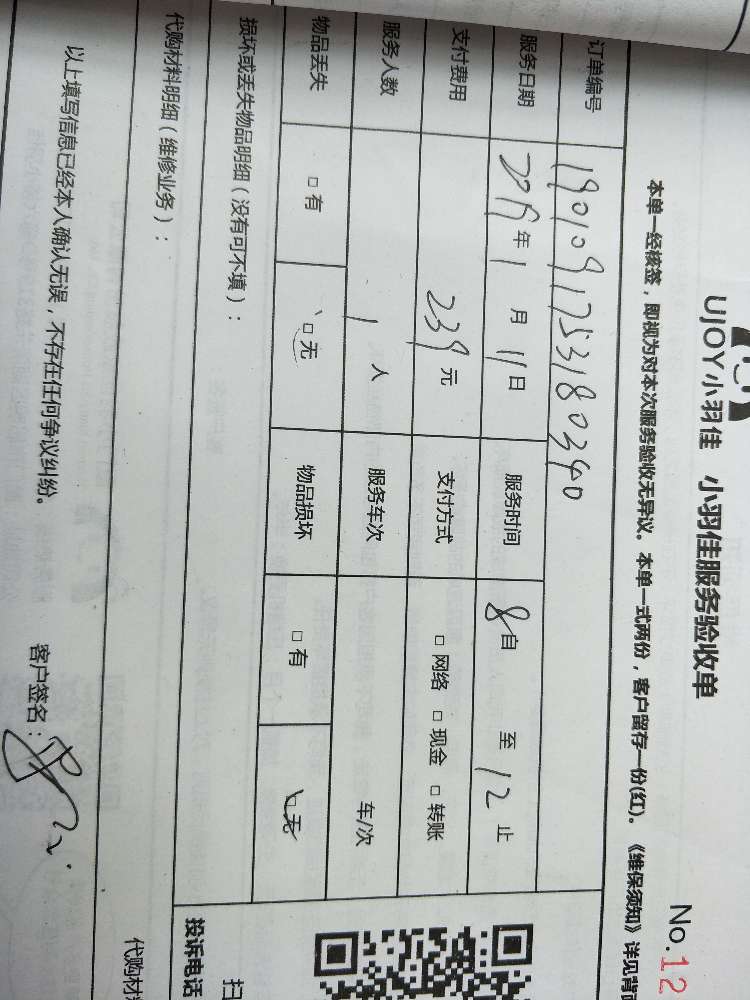 UJOY小羽佳 小羽佳服务验收单
No.12
本单一经核签，即视为对本次服务验收无异议。本单一式两份，客户留存一份(红)。《维保须知》详见背
订单编号 1901091753180340
服务日期 2019年1月11日 服务时间 8自 至12止
支付费用 239元 支付方式 □网络 □现金 □转账
服务人数 1人 服务车次 车/次
物品丢失 □有 □无 物品损坏 □有 □无
损坏或丢失物品明细（没有可不填）：
代购材料明细（维修业务）：
代购材
以上填写信息已经本人确认无误，不存在任何争议纠纷。 客户签名：
投诉电话
扫